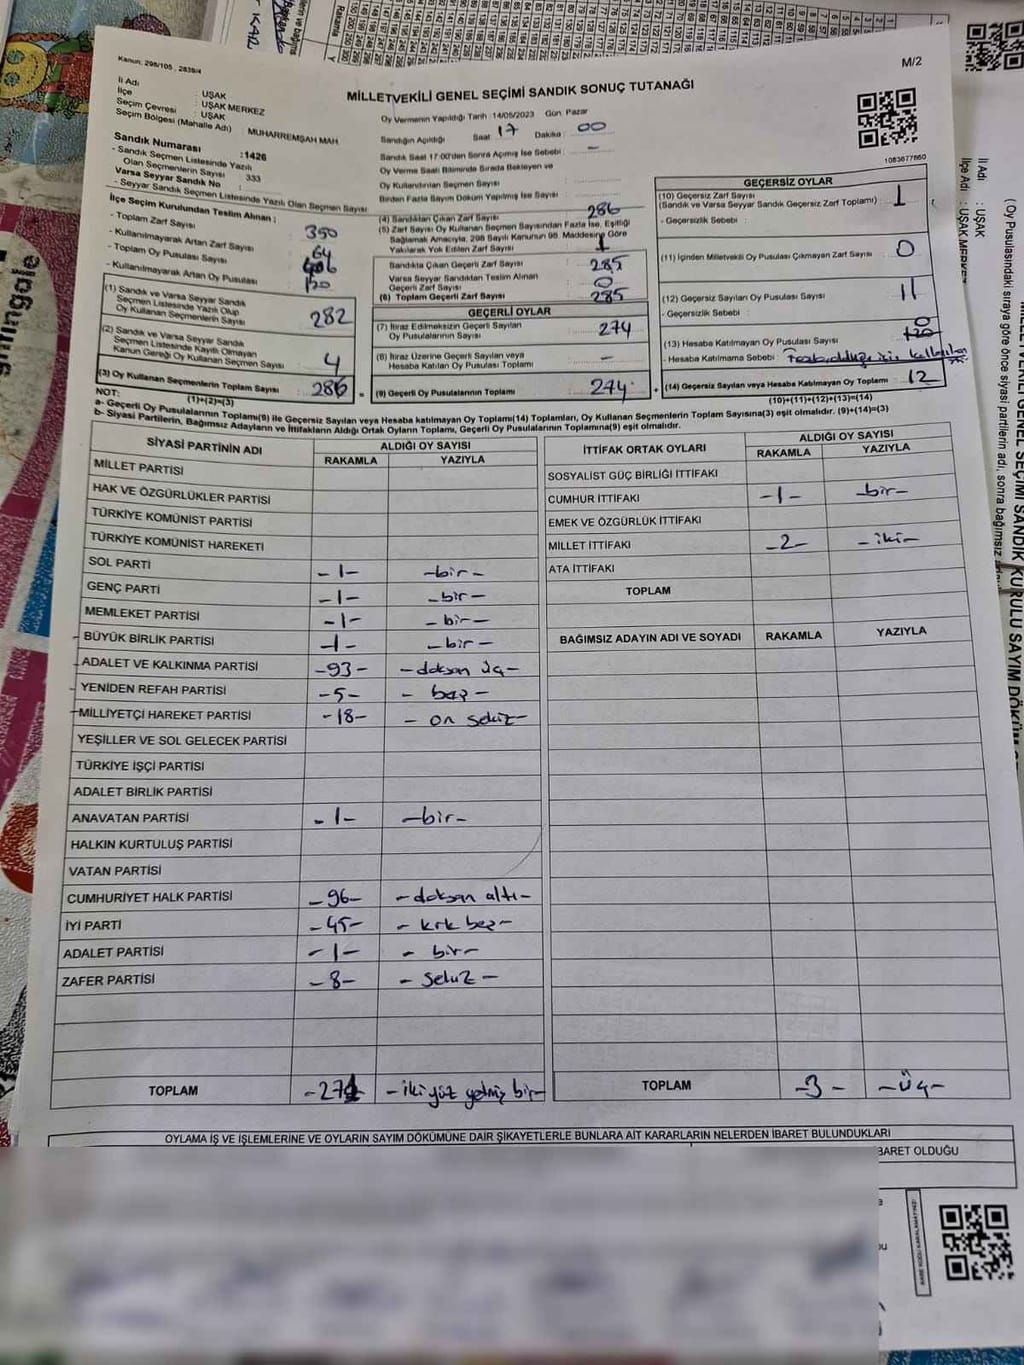 Kanun: 298/105 , 2839/4
M/2
MİLLETVEKİLİ GENEL SEÇİMİ SANDIK SONUÇ TUTANAĞI
İl Adı : UŞAK
İlçe : UŞAK MERKEZ
Seçim Çevresi : UŞAK
Seçim Bölgesi (Mahalle Adı) : MUHARREMŞAH MAH.
Sandık Numarası : 1426
- Sandık Seçmen Listesinde Yazılı
Olan Seçmenlerin Sayısı : 333
Varsa Seyyar Sandık No :
- Seyyar Sandık Seçmen Listesinde Yazılı Olan Seçmen Sayısı :
Oy Vermenin Yapıldığı Tarih :14/05/2023 Gün: Pazar
Sandığın Açıldığı Saat 17 Dakika : 00
Sandık Saat 17:00'den Sonra Açılmış İse Sebebi : -
Oy Verme Saati Bitiminde Sırada Bekleyen ve
Oy Kullandırılan Seçmen Sayısı :
Birden Fazla Sayım Döküm Yapılmış İse Sayısı :
1083677860
İlçe Seçim Kurulundan Teslim Alınan ;
- Toplam Zarf Sayısı : 350
- Kullanılmayarak Artan Zarf Sayısı : 64
- Toplam Oy Pusulası Sayısı : 406
- Kullanılmayarak Artan Oy Pusulası : 120
(1) Sandık ve Varsa Seyyar Sandık
Seçmen Listesinde Yazılı Olup
Oy Kullanan Seçmenlerin Sayısı : 282
(2) Sandık ve Varsa Seyyar Sandık
Seçmen Listesinde Kayıtlı Olmayan
Kanun Gereği Oy Kullanan Seçmen Sayısı : 4
(3) Oy Kullanan Seçmenlerin Toplam Sayısı : 286
(1)+(2)=(3)
(4) Sandıktan Çıkan Zarf Sayısı : 286
(5) Zarf Sayısı Oy Kullanan Seçmen Sayısından Fazla İse, Eşitliği
Sağlamak Amacıyla, 298 Sayılı Kanunun 98. Maddesine Göre
Yakılarak Yok Edilen Zarf Sayısı :
Sandıkta Çıkan Geçerli Zarf Sayısı : 285
Varsa Seyyar Sandıktan Teslim Alınan
Geçerli Zarf Sayısı : 0
(6) Toplam Geçerli Zarf Sayısı : 285
GEÇERLİ OYLAR
(7) İtiraz Edilmeksizin Geçerli Sayılan
Oy Pusulalarının Sayısı : 274
(8) İtiraz Üzerine Geçerli Sayılan veya
Hesaba Katılan Oy Pusulası Toplamı : -
(9) Geçerli Oy Pusulalarının Toplamı : 274
GEÇERSİZ OYLAR
(10) Geçersiz Zarf Sayısı : 1
(Sandık ve Varsa Seyyar Sandık Geçersiz Zarf Toplamı)
- Geçersizlik Sebebi :
(11) İçinden Milletvekili Oy Pusulası Çıkmayan Zarf Sayısı : 0
(12) Geçersiz Sayılan Oy Pusulası Sayısı : 11
- Geçersizlik Sebebi :
(13) Hesaba Katılmayan Oy Pusulası Sayısı : 0
120
- Hesaba Katılmama Sebebi : Fazla olduğu için
(14) Geçersiz Sayılan veya Hesaba Katılmayan Oy Toplamı : 12
(10)+(11)+(12)+(13)=(14)
NOT:
a- Geçerli Oy Pusulalarının Toplamı(9) ile Geçersiz Sayılan veya Hesaba katılmayan Oy Toplamı(14) Toplamları, Oy Kullanan Seçmenlerin Toplam Sayısına(3) eşit olmalıdır. (9)+(14)=(3)
b- Siyasi Partilerin, Bağımsız Adayların ve İttifakların Aldığı Ortak Oyların Toplamı, Geçerli Oy Pusulalarının Toplamına(9) eşit olmalıdır.
SİYASİ PARTİNİN ADI ALDIĞI OY SAYISI
RAKAMLA YAZIYLA
MİLLET PARTİSİ
HAK VE ÖZGÜRLÜKLER PARTİSİ
TÜRKİYE KOMÜNİST PARTİSİ
TÜRKİYE KOMÜNİST HAREKETİ
SOL PARTİ -1- -bir-
GENÇ PARTİ -1- -bir-
MEMLEKET PARTİSİ -1- -bir-
BÜYÜK BİRLİK PARTİSİ -1- -bir-
ADALET VE KALKINMA PARTİSİ -93- -doksan üç-
YENİDEN REFAH PARTİSİ -5- -beş-
MİLLİYETÇİ HAREKET PARTİSİ -18- -on sekiz-
YEŞİLLER VE SOL GELECEK PARTİSİ
TÜRKİYE İŞÇİ PARTİSİ
ADALET BİRLİK PARTİSİ
ANAVATAN PARTİSİ -1- -bir-
HALKIN KURTULUŞ PARTİSİ
VATAN PARTİSİ
CUMHURİYET HALK PARTİSİ -96- -doksan altı-
İYİ PARTİ -45- -kırk beş-
ADALET PARTİSİ -1- -bir-
ZAFER PARTİSİ -8- -sekiz-
TOPLAM -271- -iki yüz yetmiş bir-
İTTİFAK ORTAK OYLARI ALDIĞI OY SAYISI
RAKAMLA YAZIYLA
SOSYALİST GÜÇ BİRLİĞİ İTTİFAKI
CUMHUR İTTİFAKI -1- -bir-
EMEK VE ÖZGÜRLÜK İTTİFAKI
MİLLET İTTİFAKI -2- -iki-
ATA İTTİFAKI
TOPLAM
BAĞIMSIZ ADAYIN ADI VE SOYADI RAKAMLA YAZIYLA
TOPLAM -3- -üç-
OYLAMA İŞ VE İŞLEMLERİNE VE OYLARIN SAYIM DÖKÜMÜNE DAİR ŞİKAYETLERLE BUNLARA AİT KARARLARIN NELERDEN İBARET BULUNDUKLARI
BARET OLDUĞU
İl Adı : UŞAK
İlçe Adı : UŞAK MERKEZ
(Oy Pusulasındaki sıraya göre önce siyasi partilerin adı, sonra bağımsız
MİLLETVEKİLİ GENEL SEÇİMİ SANDIK KURULU SAYIM DÖKÜM